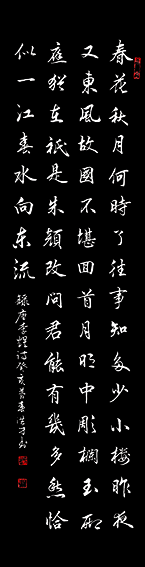 春花秋月何時了往事知多少小樓昨夜
又東風故國不堪回首月明中彫欄玉砌
應猶在祇是朱顏改問君能有幾多愁恰
似一江春水向东流
録唐李煜詞癸亥暮春